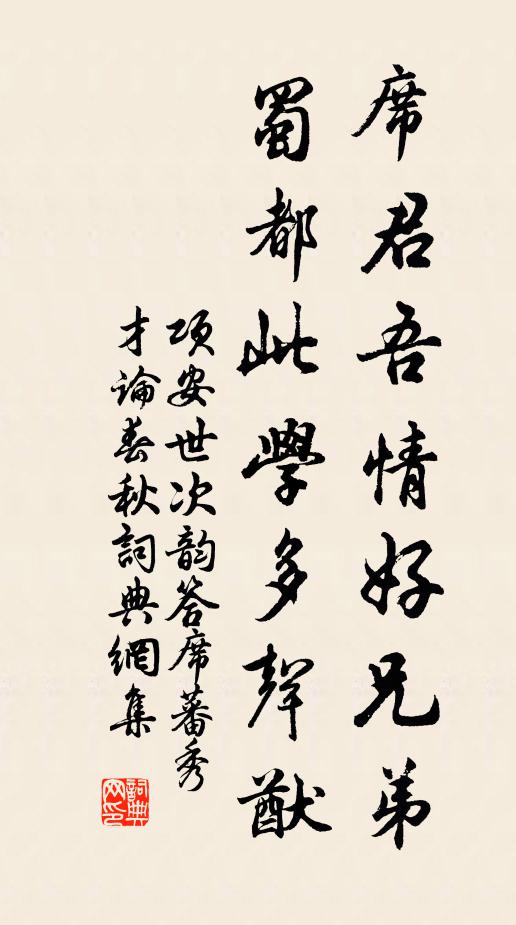 席君吾情好兄弟
蜀都此學多聲猷
項安世次韵答席蕃秀
才論春秋詞典網集
詞典网印